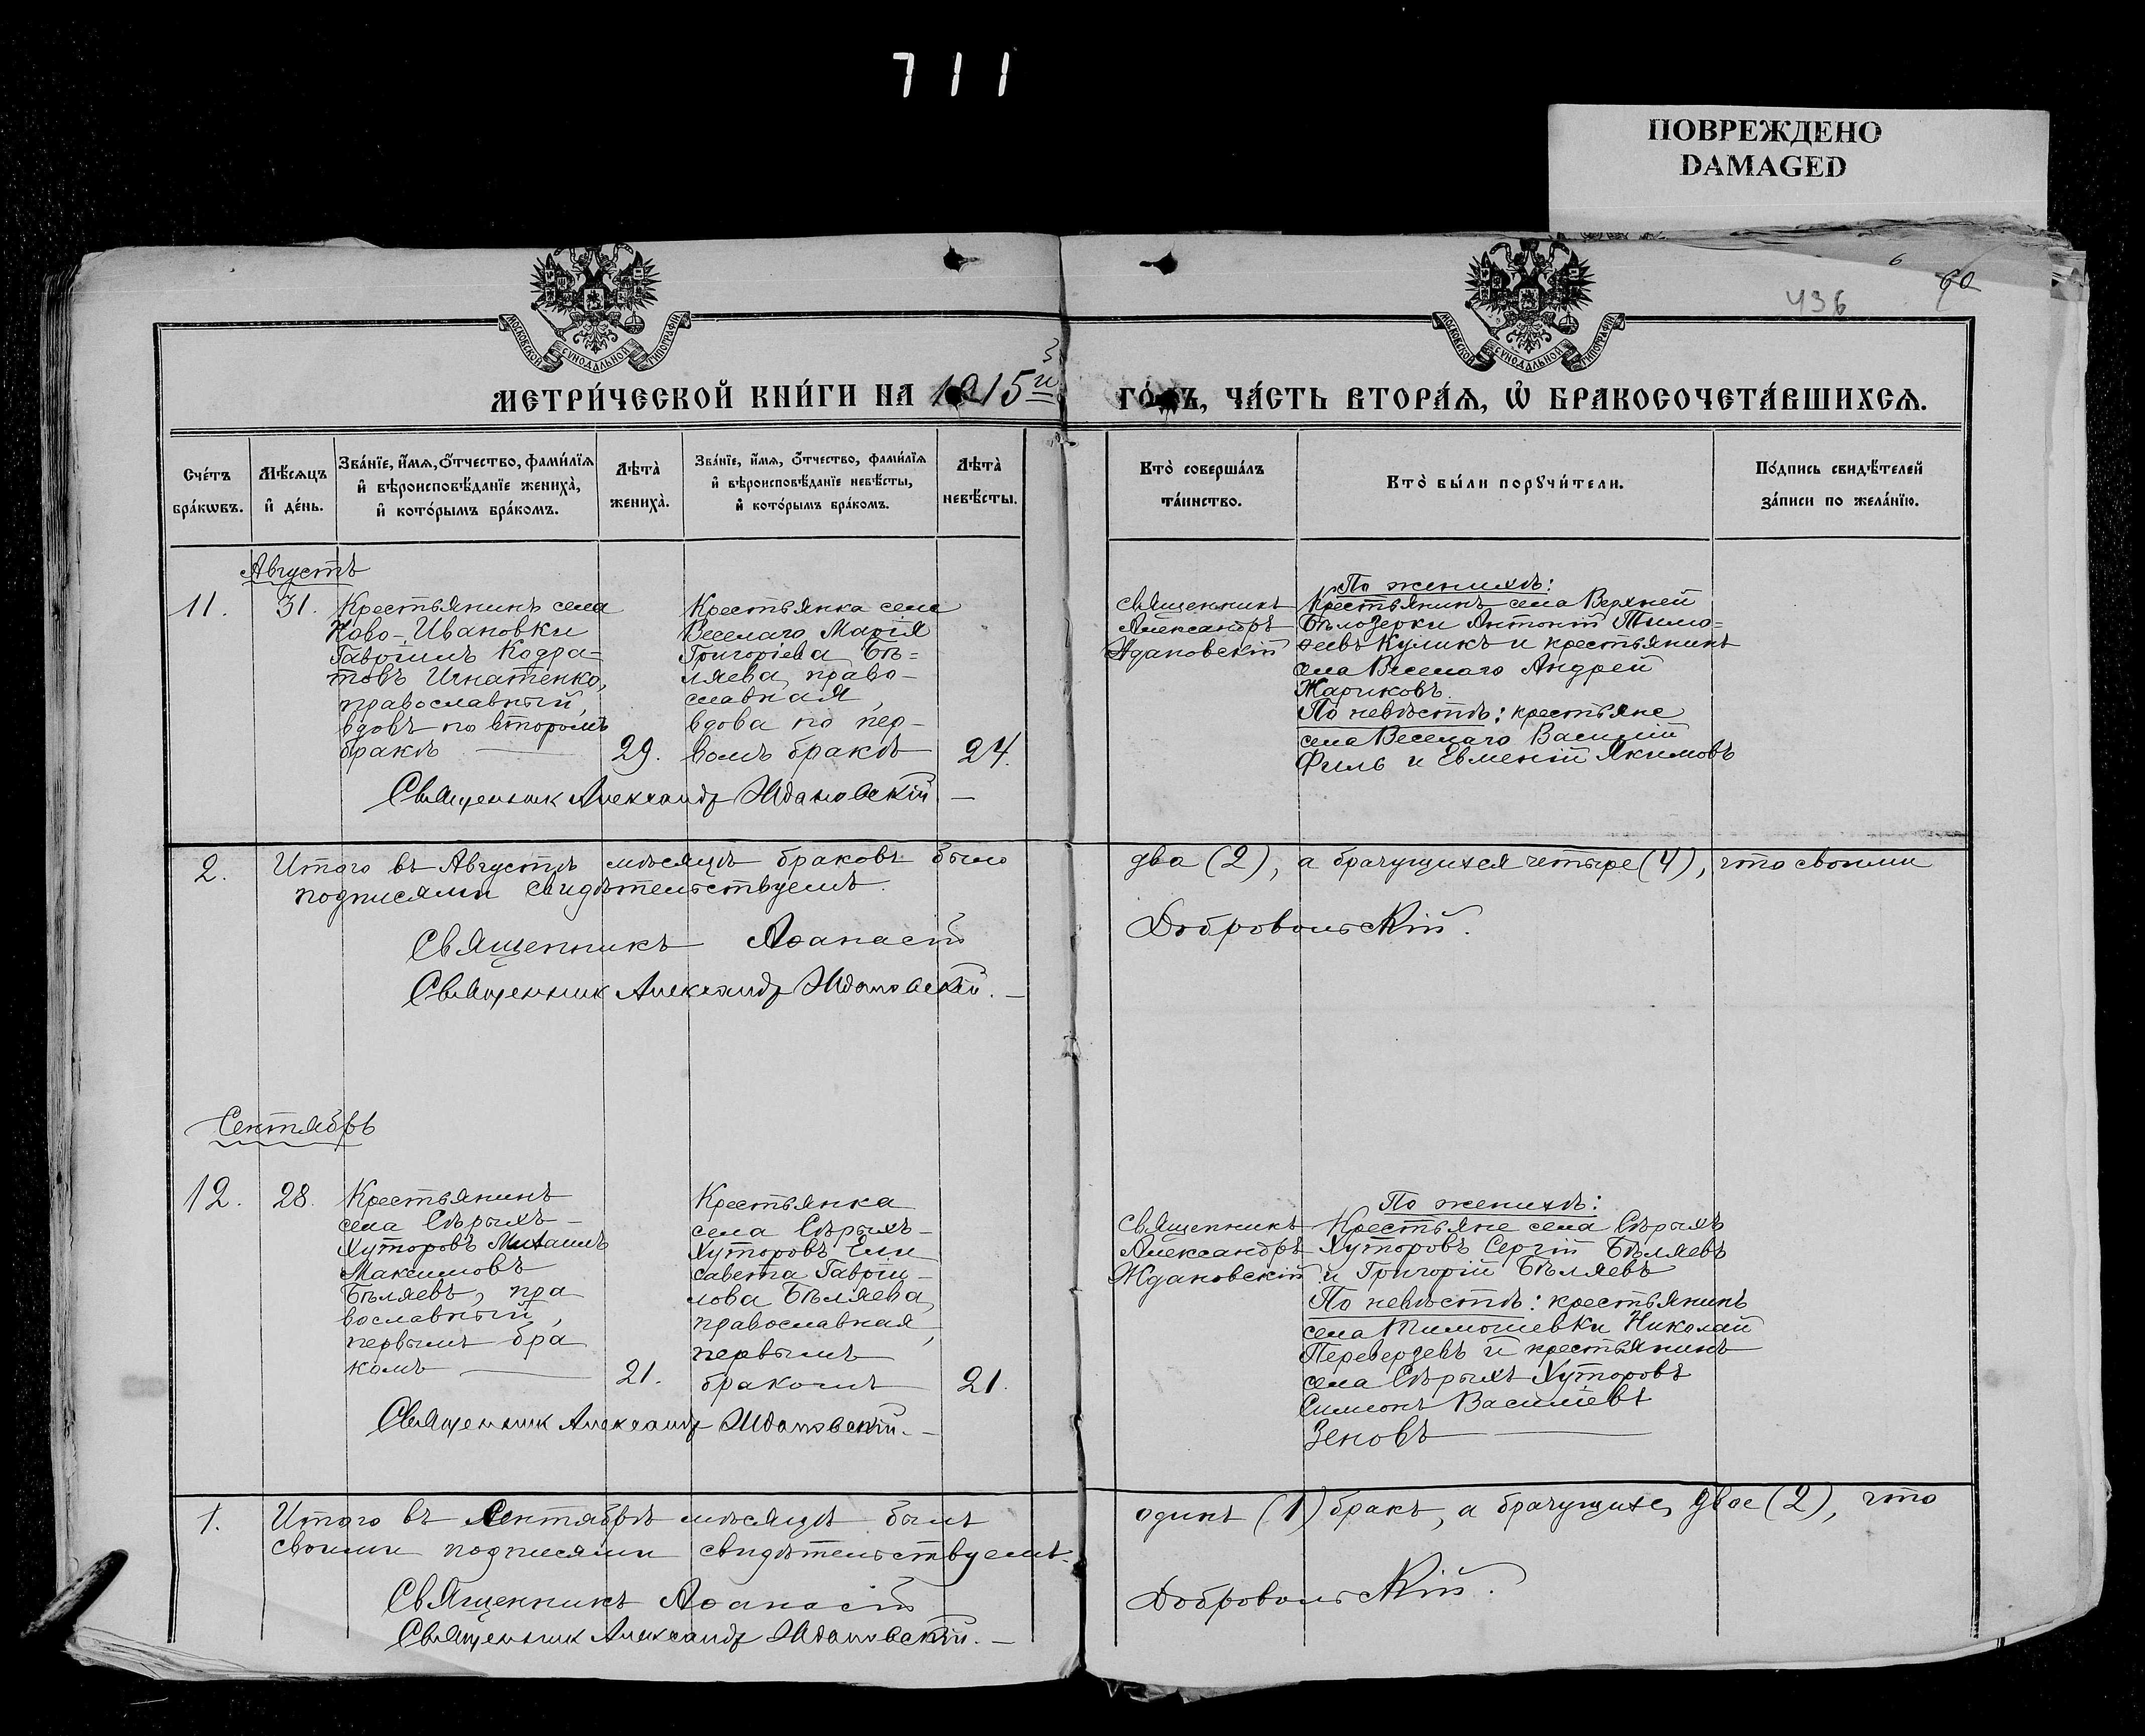 711
ПОВРЕЖДЕНО
DAMAGED
60
436
МОСКОВСКОЙ СѴНОДАЛЬНОЙ ТИПОГРАФІИ
МОСКОВСКОЙ СѴНОДАЛЬНОЙ ТИПОГРАФІИ
МЕТРИ́ЧЕСКОЙ КНИ́ГИ НА 1915й ГО́ДЪ, ЧА́СТЬ ВТОРА́Я, Ѽ БРАКОСОЧЕТА́ВШИХСЯ.
Сче́тъ бра́кѡвъ.
Мѣ́сяцъ и҆ де́нь.
Зва́нїе, и҆́мя, ѻ҆́тчество, фами́лїя и҆ вѣроисповѣ́данїе жениха̀, и҆ кото́рымъ бра́комъ.
Лѣта̀ жениха̀.
Зва́нїе, и҆́мя, ѻ҆́тчество, фами́лїя и҆ вѣроисповѣ́данїе невѣ́сты, и҆ кото́рымъ бра́комъ.
Лѣта̀ невѣ́сты.
Кто̀ соверша́лъ та́инство.
Кто̀ бы́ли порꙋчи́тели.
По́дпись свидѣ́телей за́писи по жела́нїю.
Августъ
11.
31.
Крестьянинъ села
Ново-Ивановки
Гавріилъ Кодра=
товъ Игнатенко,
православный,
вдовъ по второмъ
бракѣ
29.
Крестьянка села
Веселаго Марія
Григоріева Бѣ=
ляева, право-
славная,
вдова по пер-
вомъ бракѣ
24.
Священникъ
Александръ
Ждановскій
По женихѣ:
Крестьянинъ села Верхней
Бѣлозерки Антоній Тимо=
ѳеевъ Куликъ и крестьянинъ
села Веселаго Андрей
Жариковъ.
По невѣстѣ: крестьяне
села Веселаго Василій
Филь и Евменій Якимовъ
Священник Александр Ждановскій.
2.
Итого въ Августѣ мѣсяцѣ браковъ было два (2), а брачущихся четыре (4), что своими
подписями свидѣтельствуемъ.
Священникъ Аѳанасій Добровольскій.
Священник Александр Ждановскій.
Сентябрь
12.
28.
Крестьянинъ
села Сѣрыхъ-
Хуторовъ Михаилъ
Максимовъ
Бѣляевъ, пра
вославный,
первымъ бра
комъ
21.
Крестьянка
села Сѣрыхъ-
Хуторовъ Ели
савета Гавріи-
лова Бѣляева,
православная,
первымъ
бракомъ
21.
Священникъ
Александръ
Ждановскій
По женихѣ:
Крестьяне села Сѣрыхъ
Хуторовъ Сергій Бѣляевъ
и Григорій Бѣляевъ
По невѣстѣ: крестьянинъ
села Тимошевки Николай
Перевердевъ и крестьянинъ
села Сѣрыхъ Хуторовъ
Симеонъ Василіевъ
Зеновъ
Священник Александр Ждановскій.
1.
Итого въ Сентябрѣ мѣсяцѣ былъ одинъ (1) бракъ, а брачущихся двое (2), что
своими подписями свидѣтельствуемъ.
Священникъ Аѳанасій Добровольскій.
Священник Александр Ждановскій.